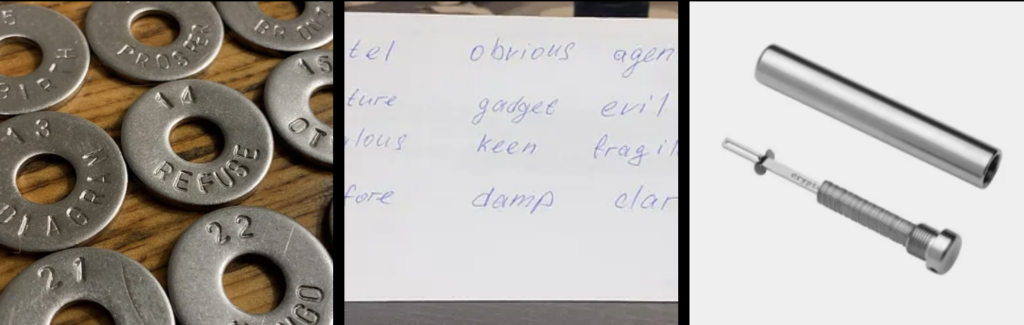 PROSPER
13 DIAGRAM
14 REFUSE
15 OT
21
22 NGO
tel obvious agen
ture gadget evil
lous keen fragil
fore damp clar
crypt